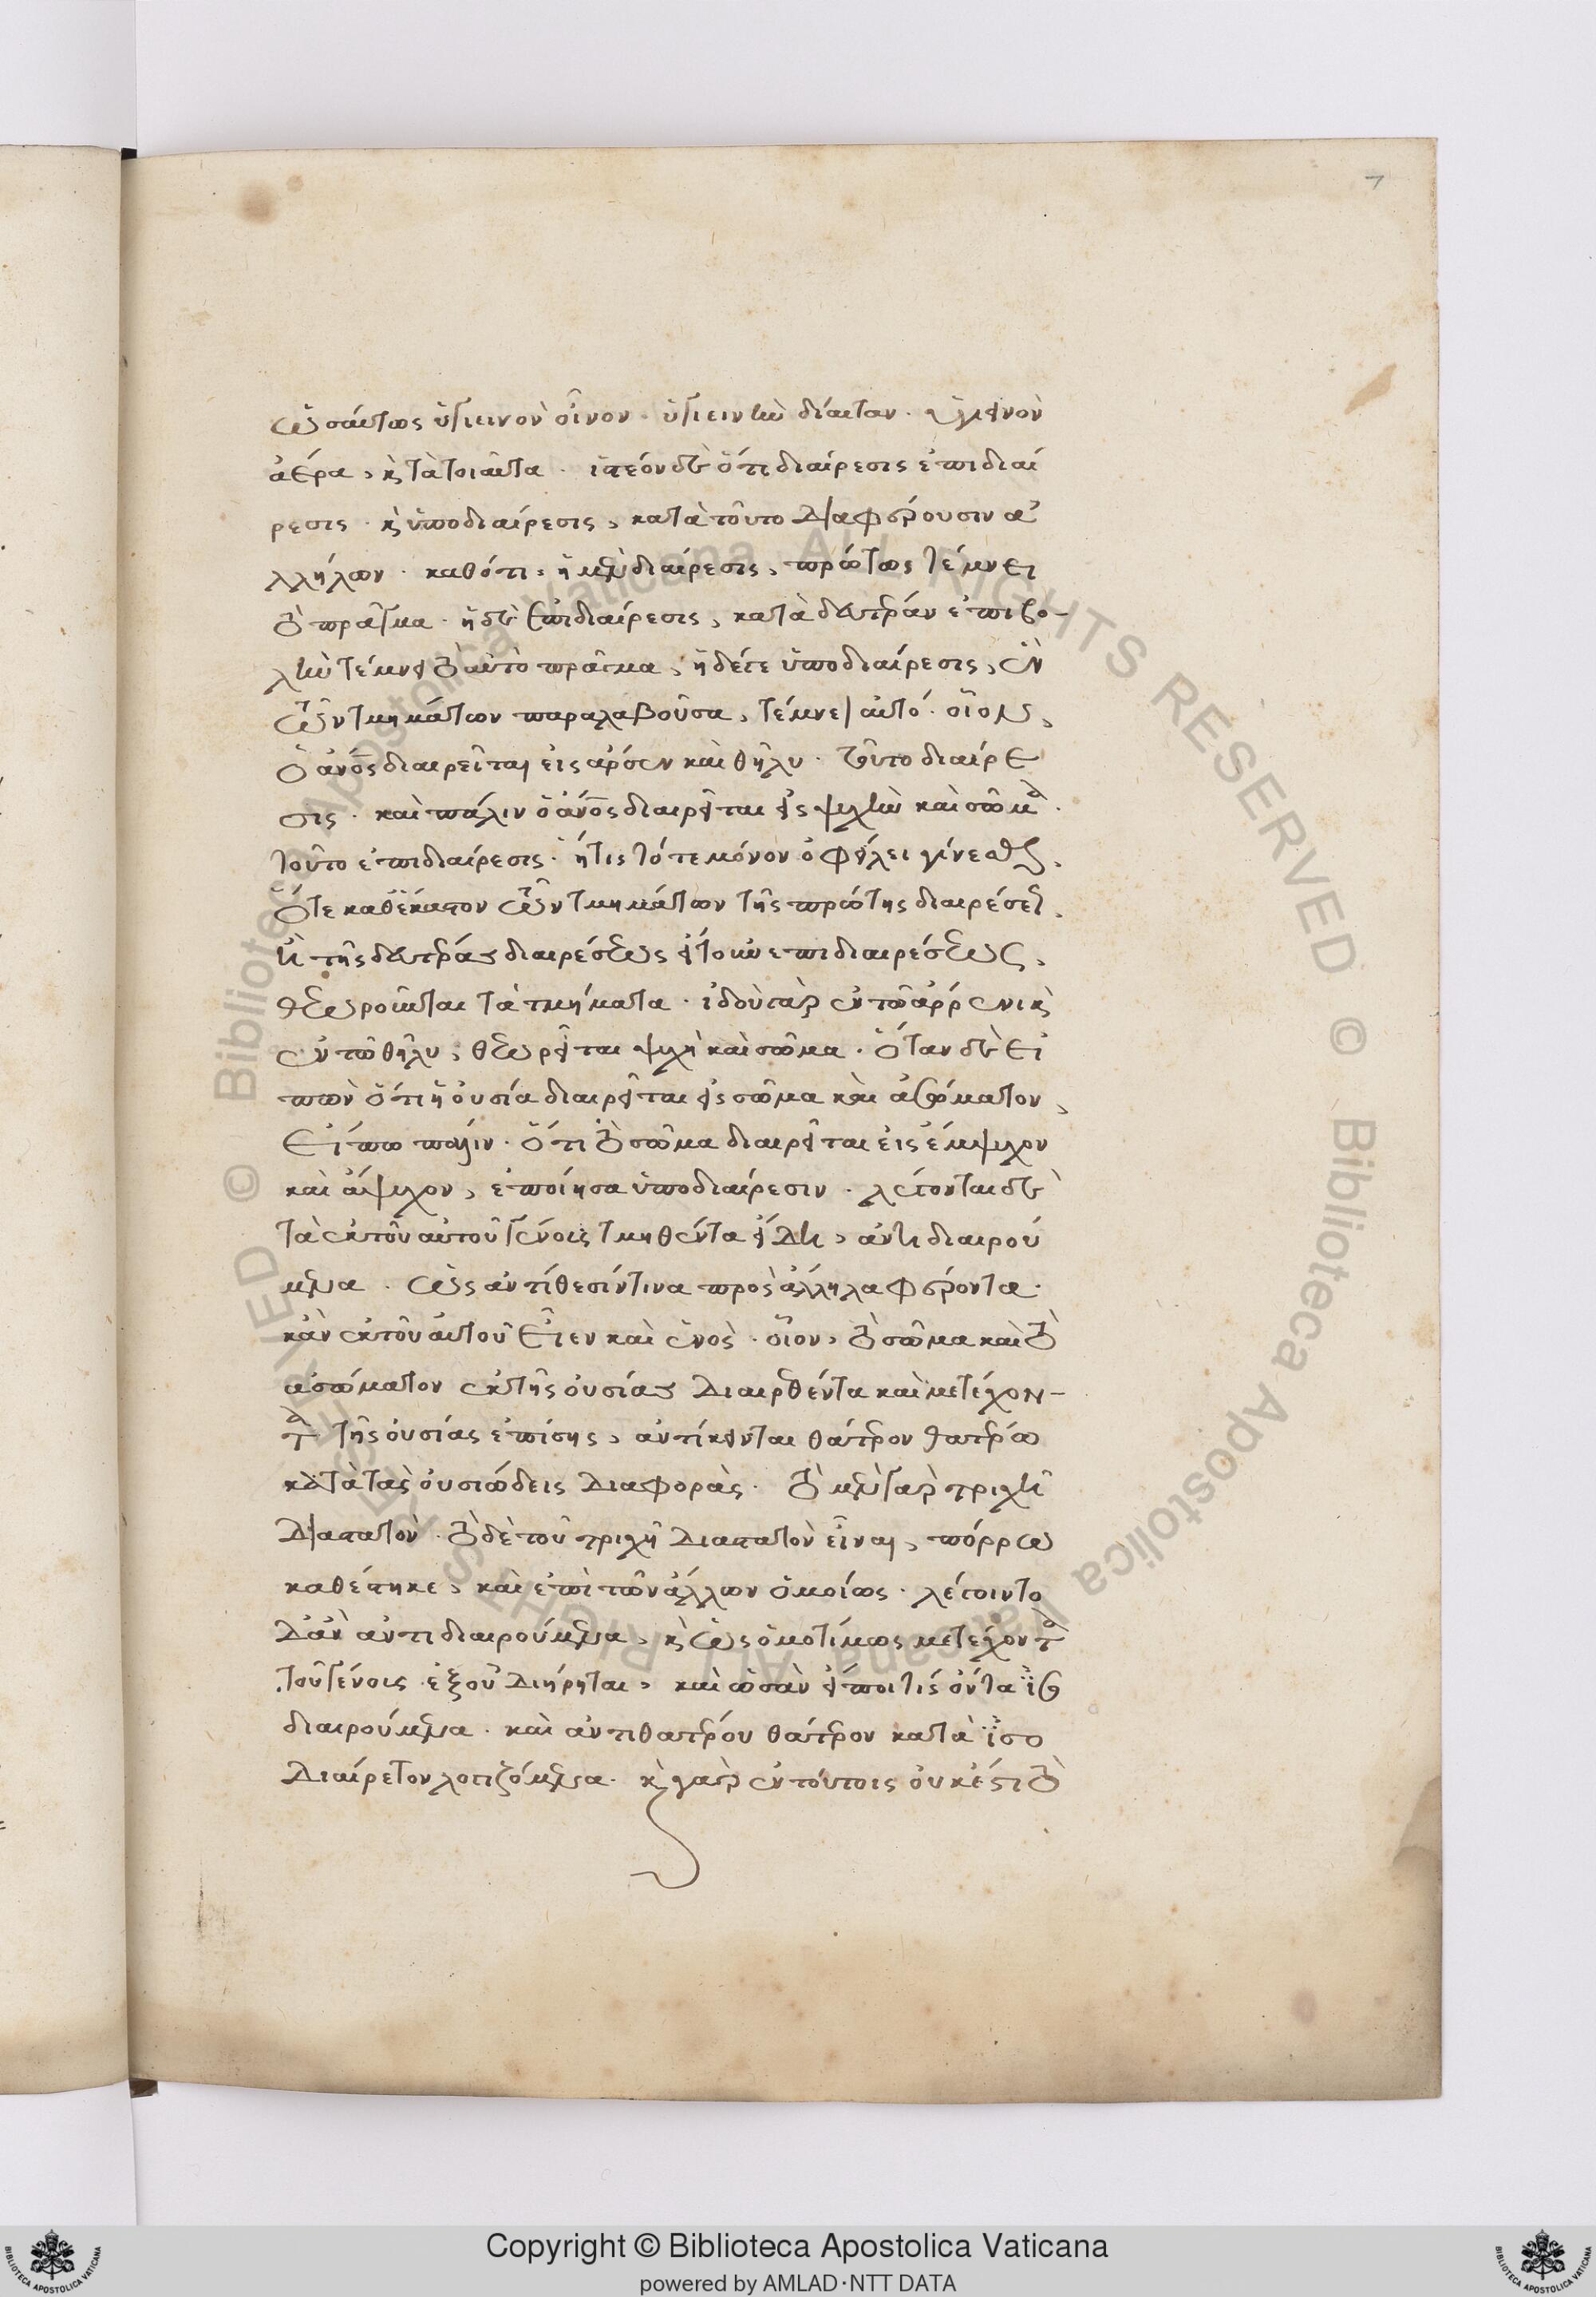 7
ὡσαύτως ὑγιεινὸν οἶνον · ὑγιεινὴν δίαιταν · ὑγιεινὸν
ἀέρα, καὶ τὰ τοιαῦτα · ἰστέον δὲ ὅτι διαίρεσις ἐπιδιαί
ρεσις · καὶ ὑποδιαίρεσις, κατὰ τοῦτο διαφέρουσιν ἀ
λλήλων · καθότι, ἡ μὲν διαίρεσις, πρώτως τέμνει
τὸ πρᾶγμα · ἡ δὲ ἐπιδιαίρεσις, κατὰ δευτέραν ἐπιβο-
λὴν τέμνει τὸ αὐτὸ πρᾶγμα, ἡ δέ γε ὑποδιαίρεσις, ἓν
τῶν τμημάτων παραλαβοῦσα, τέμνει αὐτό · οἷον,
ὁ ἄνος διαιρεῖται εἰς ἄρσεν καὶ θῆλυ · τοῦτο διαίρε
σις · καὶ πάλιν ὁ ἄνος διαιρεῖται εἰς ψυχὴν καὶ σῶμα ·
τοῦτο ἐπιδιαίρεσις · ἥτις τότε μόνον ὀφείλει γίνεσθαι,
ὅτε καθ' ἕκαστον τῶν τμημάτων τῆς πρώτης διαιρέσεως,
τῆς δευτέρας διαιρέσεως ἤγουν ἐπιδιαιρέσεως,
θεωροῦνται τὰ τμήματα · ἰδοὺ γὰρ ἐν τῶ ἄρρενι καὶ
ἐν τῶ θῆλυ, θεωρεῖται ψυχὴ καὶ σῶμα · ὅταν δὲ εἰ
πὼν ὅτι ἡ οὐσία διαιρεῖται εἰς σῶμα καὶ ἀσώματον,
εἴπω πάλιν · ὅτι τὸ σῶμα διαιρεῖται εἰς ἔμψυχον
καὶ ἄψυχον, ἐποίησα ὑποδιαίρεσιν · λέγονται δὲ
τὰ ἐκ τοῦ αὐτοῦ γένους τμηθέντα εἴδη, ἀντιδιαιρού
μενα · ὡς ἀντίθεσίν τινα πρὸς ἄλληλα φέροντα ·
κἂν ἐκ τοῦ αὐτοῦ εἶεν καὶ ἑνὸς · οἷον, τὸ σῶμα καὶ τὸ
ἀσώματον ἐκ τῆς οὐσίας διαιρεθέντα καὶ μετέχον-
τα τῆς οὐσίας ἐπίσης, ἀντίκεινται θάτερον θατέρω
κατὰ τὰς οὐσιώδεις διαφορὰς · τὸ μὲν γὰρ τριχῆ
διαστατὸν · τὸ δὲ τοῦ τριχῆ διαστατὸν εἶναι, πόρρω
καθέστηκε, καὶ ἐπὶ τῶν ἄλλων ὁμοίως · λέγοιντο
δ' ἂν ἀντιδιαιρούμενα, καὶ ὡς ὁμοτίμως μετέχοντα
τοῦ γένους ἐξ οὗ διήρηται, καὶ ὡσὰν εἴποι τις ὄντα ἰσο
διαιρούμενα · καὶ ἀντὶ θατέρου θάτερον κατὰ ἰσο
διαίρετον λογιζόμενα · καὶ γὰρ ἐν τούτοις οὐκ ἔστι τὸ
© Biblioteca Apostolica Vaticana ALL RIGHTS RESERVED
© Biblioteca Apostolica Vaticana ALL RIGHTS RESERVED
Copyright © Biblioteca Apostolica Vaticana
powered by AMLAD·NTT DATA
BIBLIOTECA APOSTOLICA VATICANA
BIBLIOTECA APOSTOLICA VATICANA